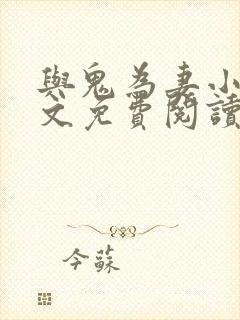 與鬼為妻小
文免費閱讀
今蘇